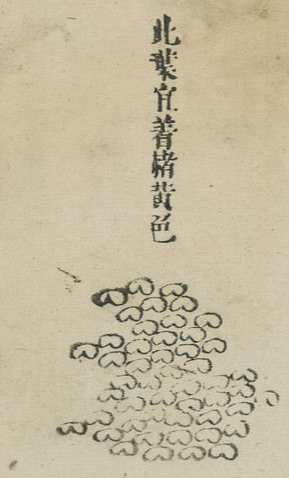 此葉宜着赭黄色